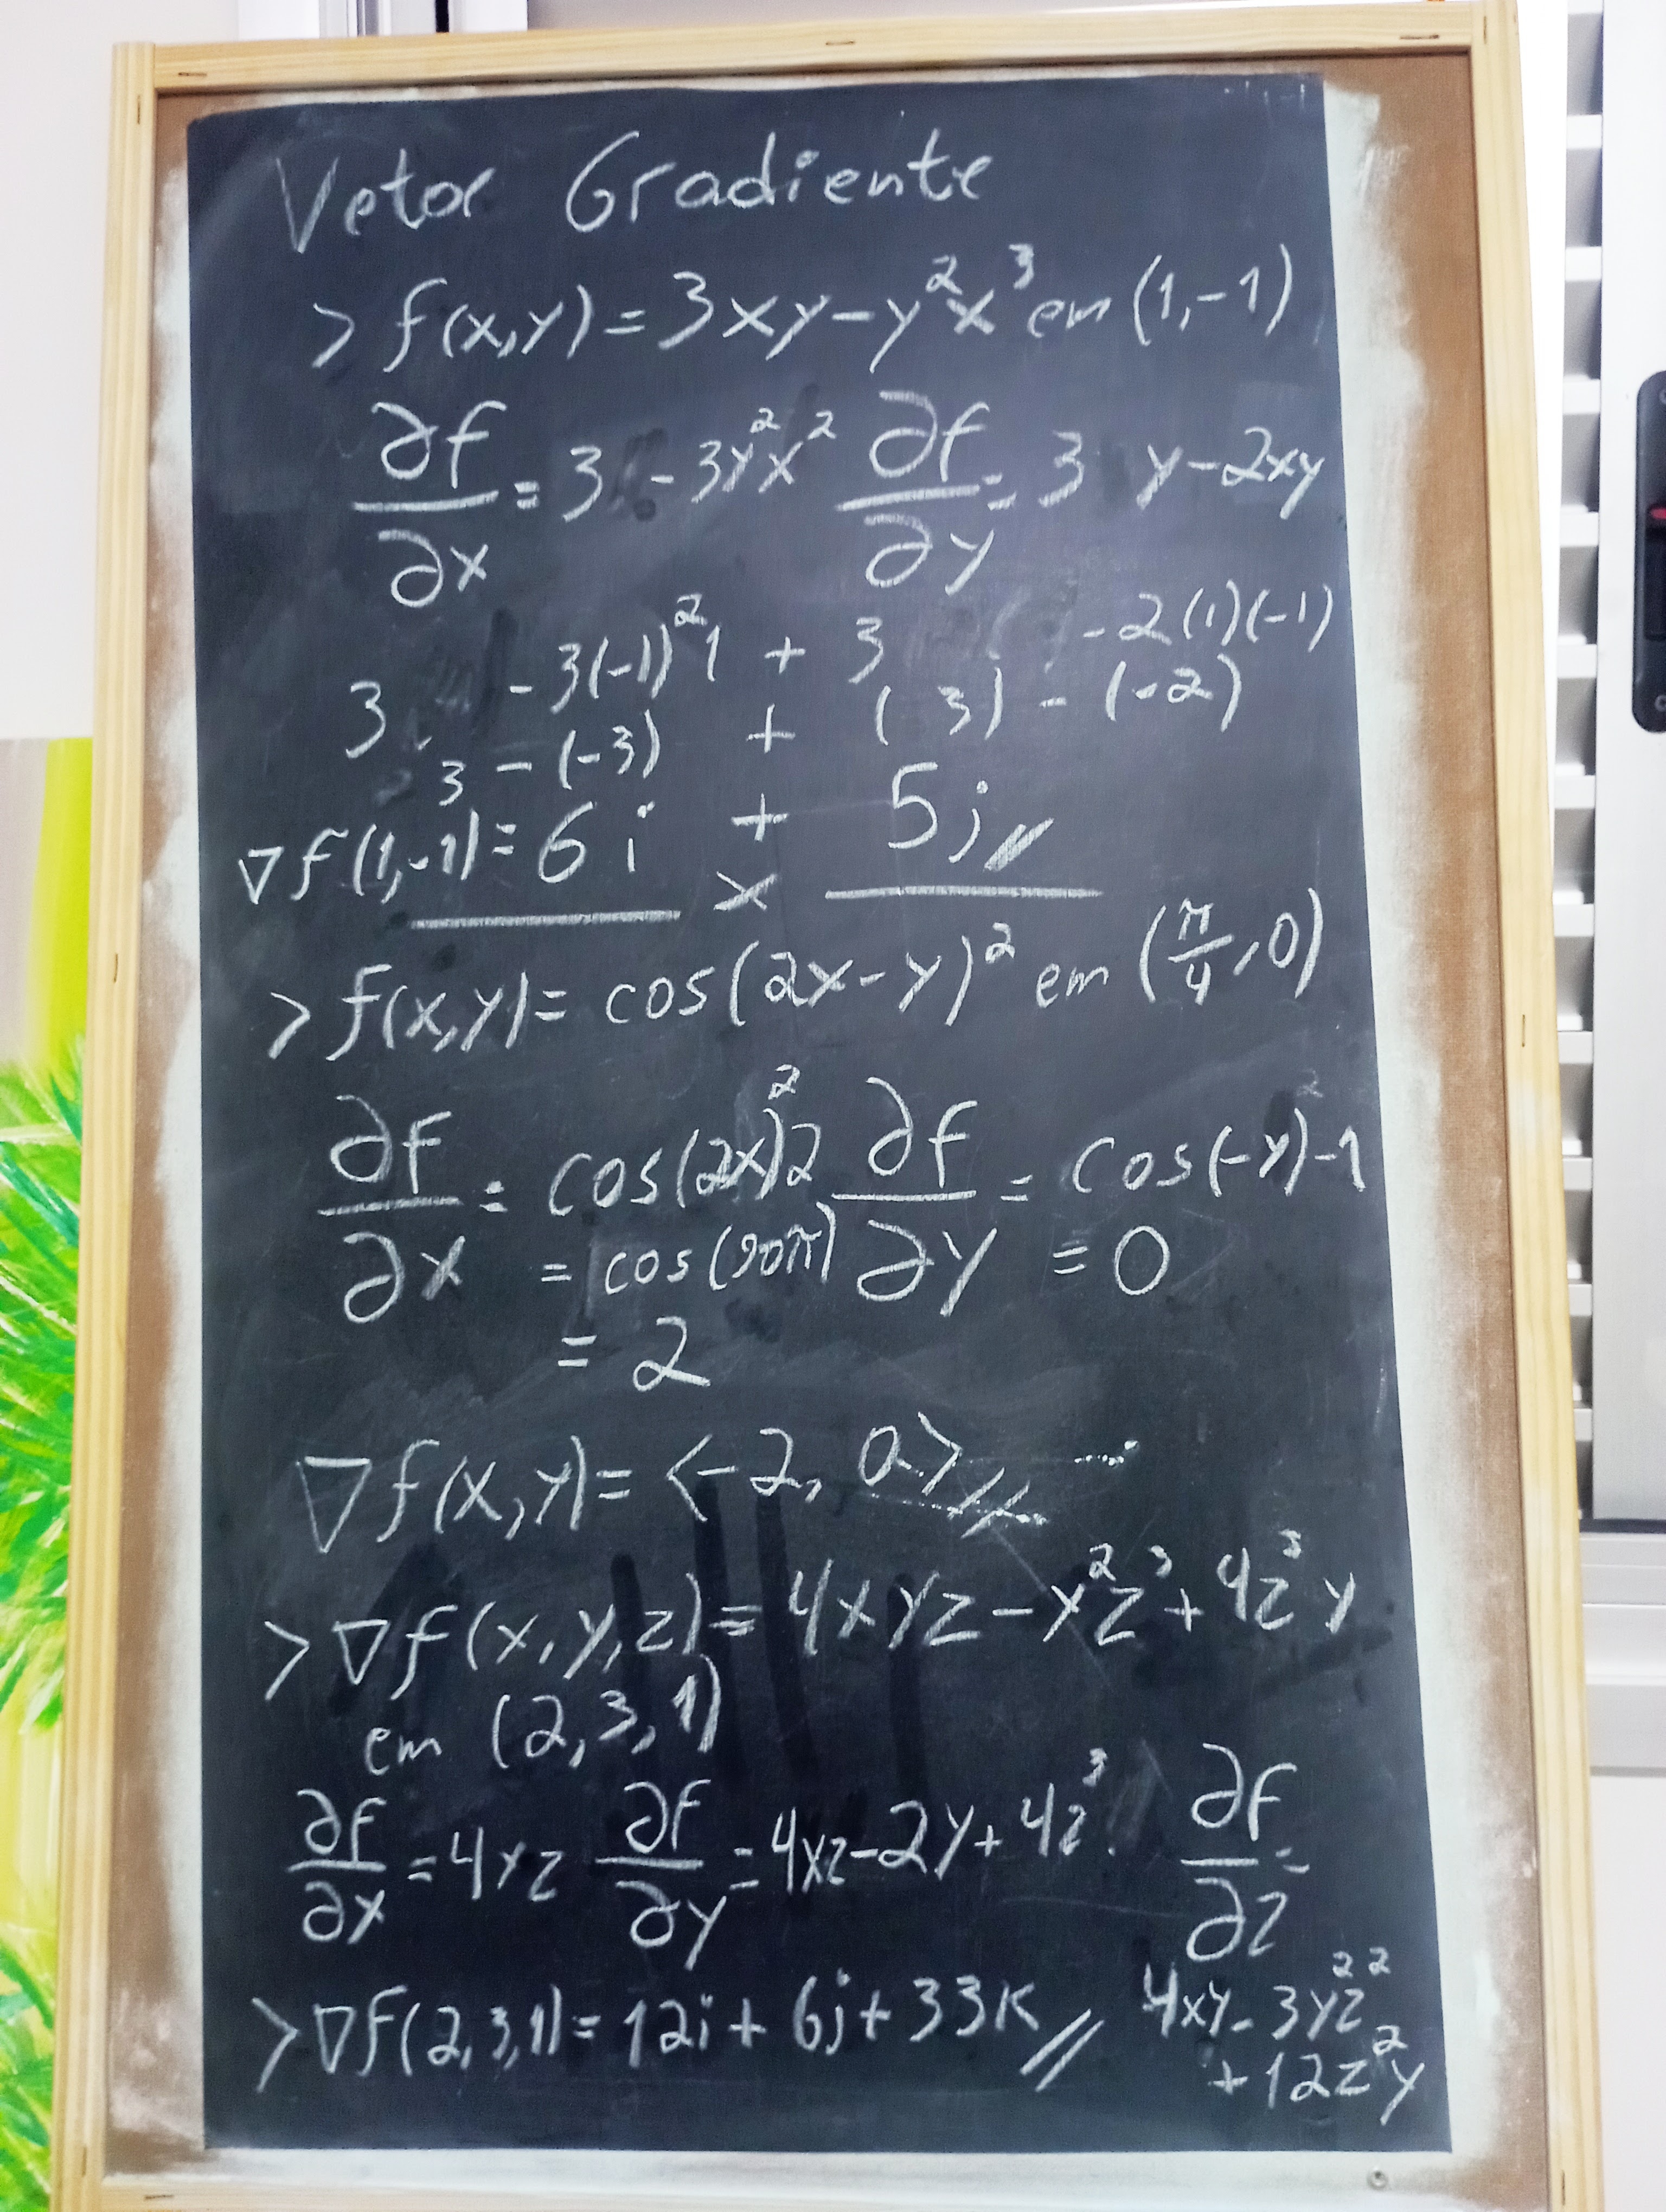 Vetor Gradiente
> f(x,y) = 3xy - y²x³ em (1,-1)
∂f/∂x = 3 - 3y²x² ∂f/∂y = 3 y - 2xy
3 - 3(-1)²1 + 3 - 2(1)(-1)
3 - (-3) + (3) - (-2)
∇f(1,-1) = 6i + 5j //
x
> f(x,y) = cos(2x-y)² em (π/4, 0)
∂f/∂x = cos(2x)²2 ∂f/∂y = cos(-y)²-1
= cos(90π) = 0
= 2
∇f(x,y) = <-2, 0> //
> ∇f(x,y,z) = 4xyz - y²z³ + 4z³y
em (2,3,1)
∂f/∂x = 4yz ∂f/∂y = 4xz - 2y + 4z³ ∂f/∂z =
4xy - 3y²z²
+ 12z²y
> ∇f(2,3,1) = 12i + 6j + 33k //